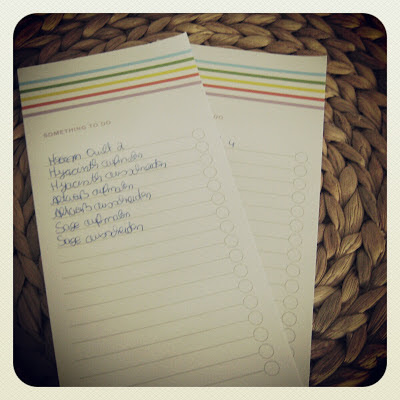 SOMETHING TO DO
Quilt 2
Hyacinth aufmalen
Hyacinth ausschneiden
aufmalen
ausschneiden
Sage aufmalen
Sage ausschneiden
TO DO
4